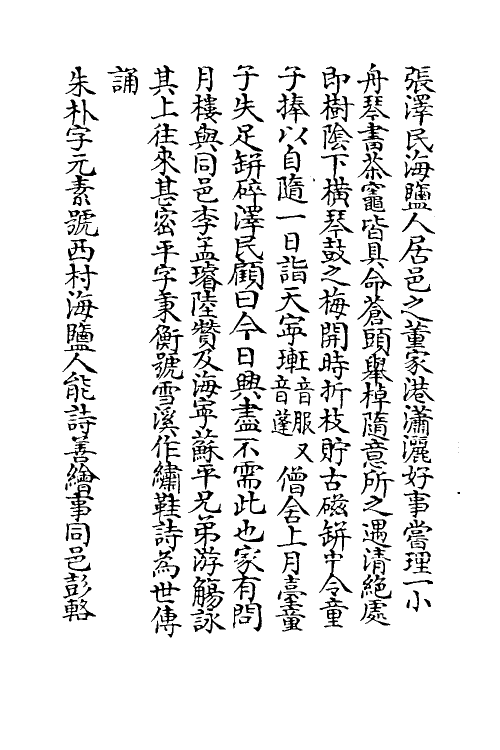 張澤民海鹽人居邑之董家港瀟灑好事嘗理一小
舟琴書茶竈皆具命蒼頭舉棹隨意所之遇清絶處
即樹陰下橫琴鼓之梅開時折枝貯古磁缾中令童
子捧以自隨一日詣天寧㻫音服又音蓬僧舍上月臺童
子失足缾碎澤民顧曰今日興盡不需此也家有問
月樓與同邑李孟璿陸贊及海寧蘇平兄弟游觴詠
其上往來甚密平字秉衡號雪溪作繡鞋詩為世傳
誦
朱朴字元素號西村海鹽人能詩善繪事同邑彭輅